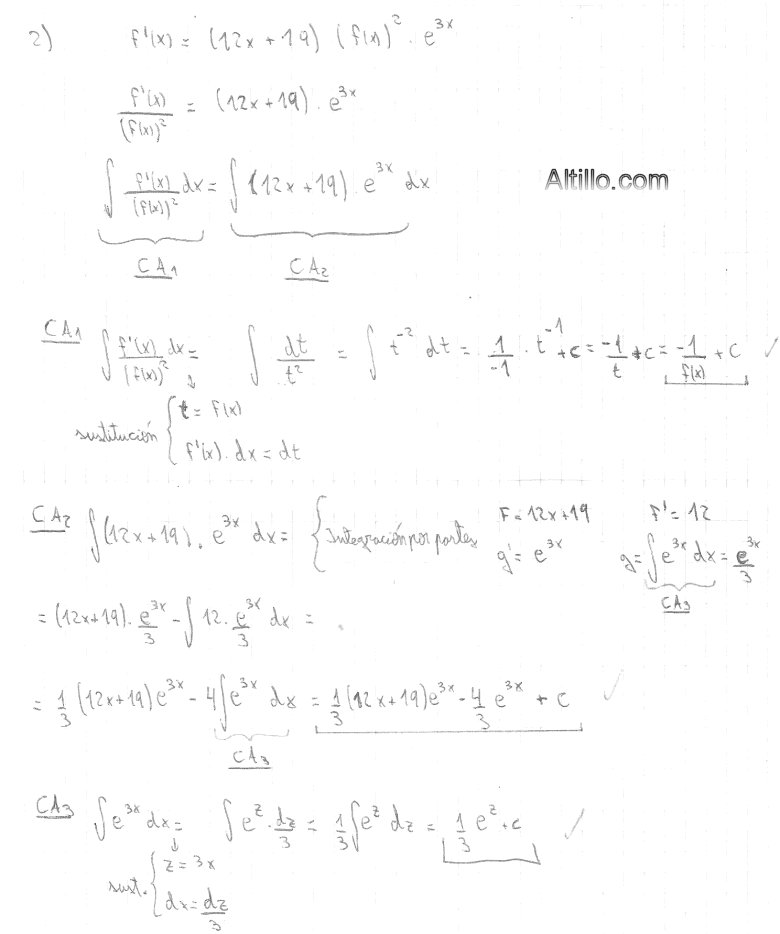 2) f'(x) = (12x + 19) (f(x))² · e³ˣ
f'(x)/(f(x))² = (12x+19) · e³ˣ
∫ f'(x)/(f(x))² dx = ∫ (12x + 19) e³ˣ dx
Altillo.com
CA₁ CA₂
CA₁ ∫ f'(x)/(f(x))² dx = ∫ dt/t² = ∫ t⁻² dt = 1/-1 · t⁻¹ + c = -1/t + c = -1/f(x) + C ✓
sustitución { t = f(x)
f'(x) · dx = dt
CA₂ ∫ (12x + 19) · e³ˣ dx = { Integración por partes F = 12x+19 F' = 12
g' = e³ˣ g = ∫ e³ˣ dx = e³ˣ/3
CA₃
= (12x+19) · e³ˣ/3 - ∫ 12 · e³ˣ/3 dx =
= 1/3 (12x+19) e³ˣ - 4 ∫ e³ˣ dx = 1/3 (12x+19) e³ˣ - 4/3 e³ˣ + C ✓
CA₃
CA₃ ∫ e³ˣ dx = ∫ eᶻ · dz/3 = 1/3 ∫ eᶻ dz = 1/3 eᶻ + c ✓
sust. { z = 3x
dx = dz/3